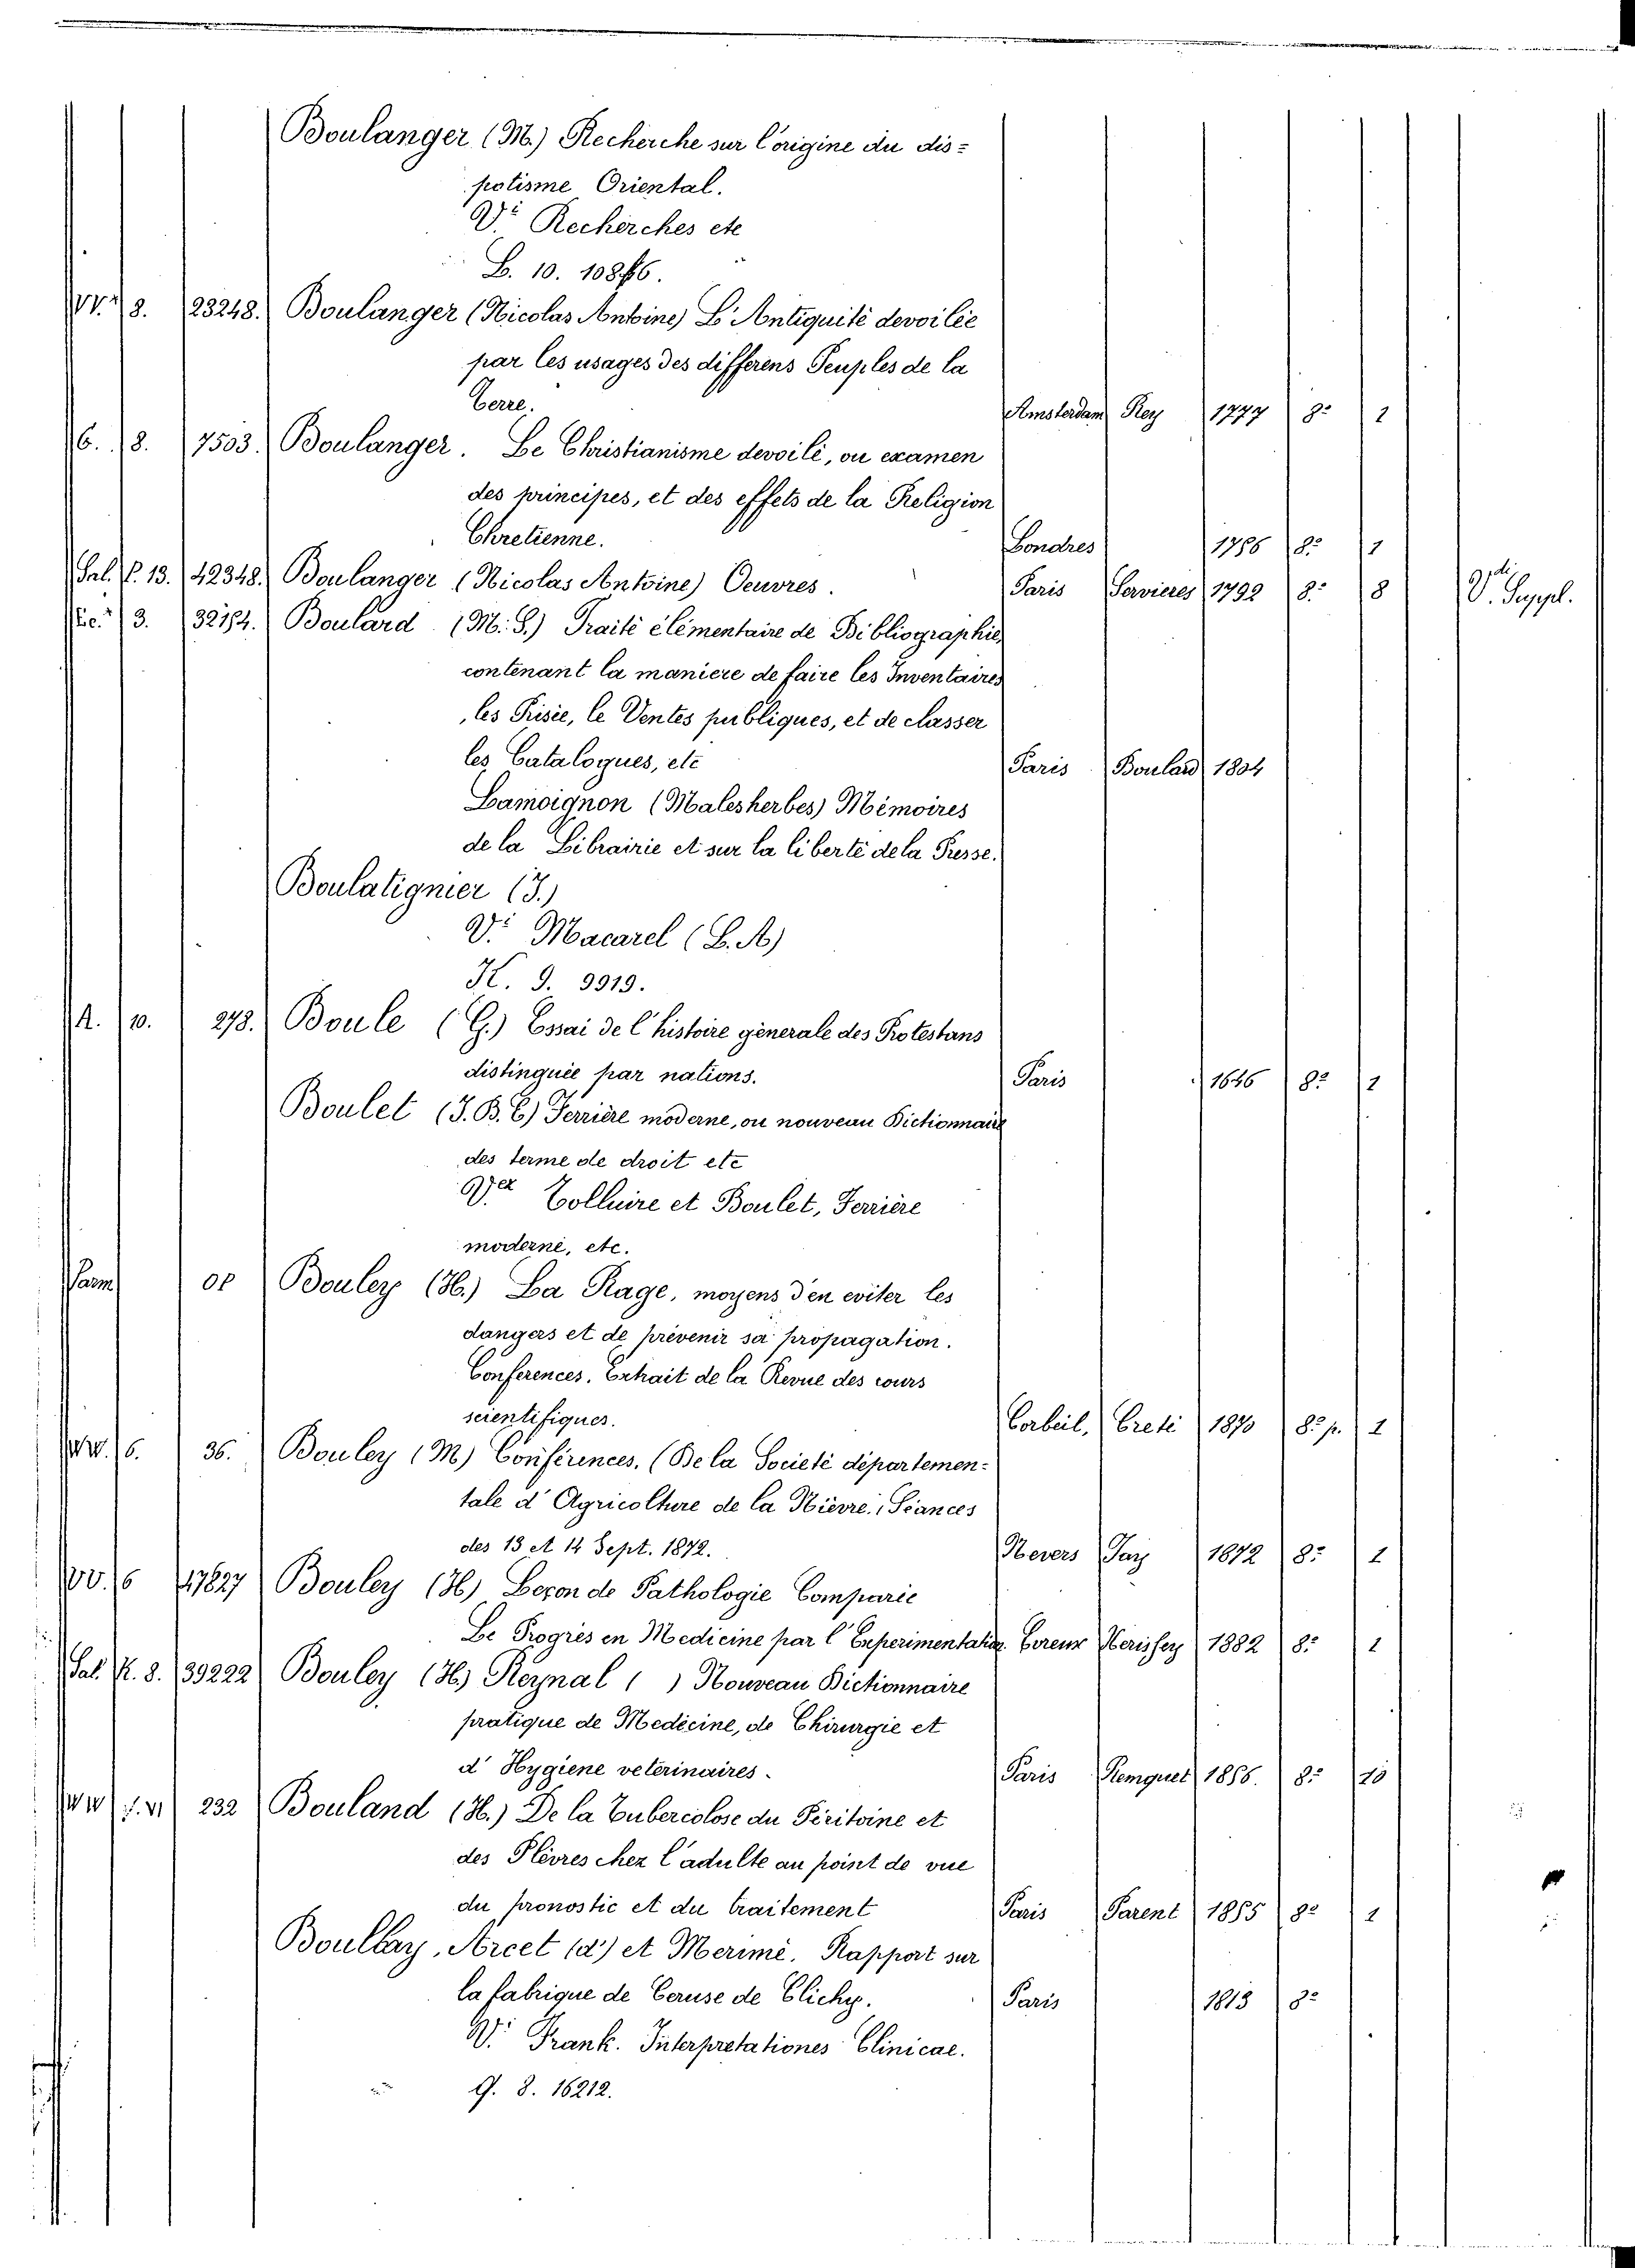 Boulanger (M.) Recherche sur l'origine du dis=
potisme Oriental.
Vi Recherches etc
B. 10. 10876.
VV. 8. 23248. Boulanger (Nicolas Antoine) L'Antiquité devoilée
par les usages des differens Peuples de la
Terre. Amsterdam Rey 1777 8º 1
6. 8. 7503. Boulanger. Le Christianisme devoilé, ou examen
des principes, et des effets de la Religion
Chretienne. Londres 1756 8º 1
Sal. P. 13. 42348. Boulanger (Nicolas Antoine) Oeuvres. Paris Servieres 1792 8º 8 V. Suppl.
3. 32184. Boulard (M. S.) Traité élémentaire de Bibliographie,
contenant la maniere de faire les Inventaires
, les Prisée, le Ventes publiques, et de classer
les Cataloques, etc Paris Boulard 1804
Lamoignon (Malesherbes) Mémoires
de la Librairie et sur la liberté de la Presse.
Boulatignier (J.)
Vi Macarel (L. A)
K. 9. 9919.
A. 10. 278. Boule (G.) Essai de l'histoire génerale des Protestans
distinguée par nations. Paris 1646 8º 1
Boulet (J. B. E) Ferrière moderne, ou nouveau Dictionnaire
des terme de droit etc
Colluire et Boulet, Ferrière
moderne, etc.
Parm op Bouley (H.) La Rage, moyens d'en eviter les
dangers et de prévenir sa propagation.
Conferences. Extrait de la Revue des cours
scientifiques. Corbeil, Creté 1870 8º p. 1
WW. 6. 36. Bouley (M) Conférences. (De la Societé départemen=
tale d'Agricolture de la Nièvre. Séances
des 13 et 14 Sept. 1872. Nevers Jay 1872 8º 1
VV. 6 47827 Bouley (H) Leçon de Pathologie Comparée
Le Progrès en Medicine par l'Experimentation Evreux Herissey 1882 8º 1
Sal. R. 8. 39222 Bouley (H.) Reynal ( ) Nouveau Dictionnaire
pratique de Medécine, de Chirurgie et
d'Hygiene veterinaires. Paris Remquet 1856. 8º 10
WW f. VI 232 Bouland (H.) De la Tubercolose du Péritoine et
des Plèvres chez l'adulte au point de vue
du pronostic et du traitement Paris Parent 1885 8º 1
Boullay, Arcet (d') et Merimé. Rapport sur
la fabrique de Ceruse de Clichy. Paris 1813 8º
Vi Frank. Interpretationes Clinicae.
G. 8. 16212.